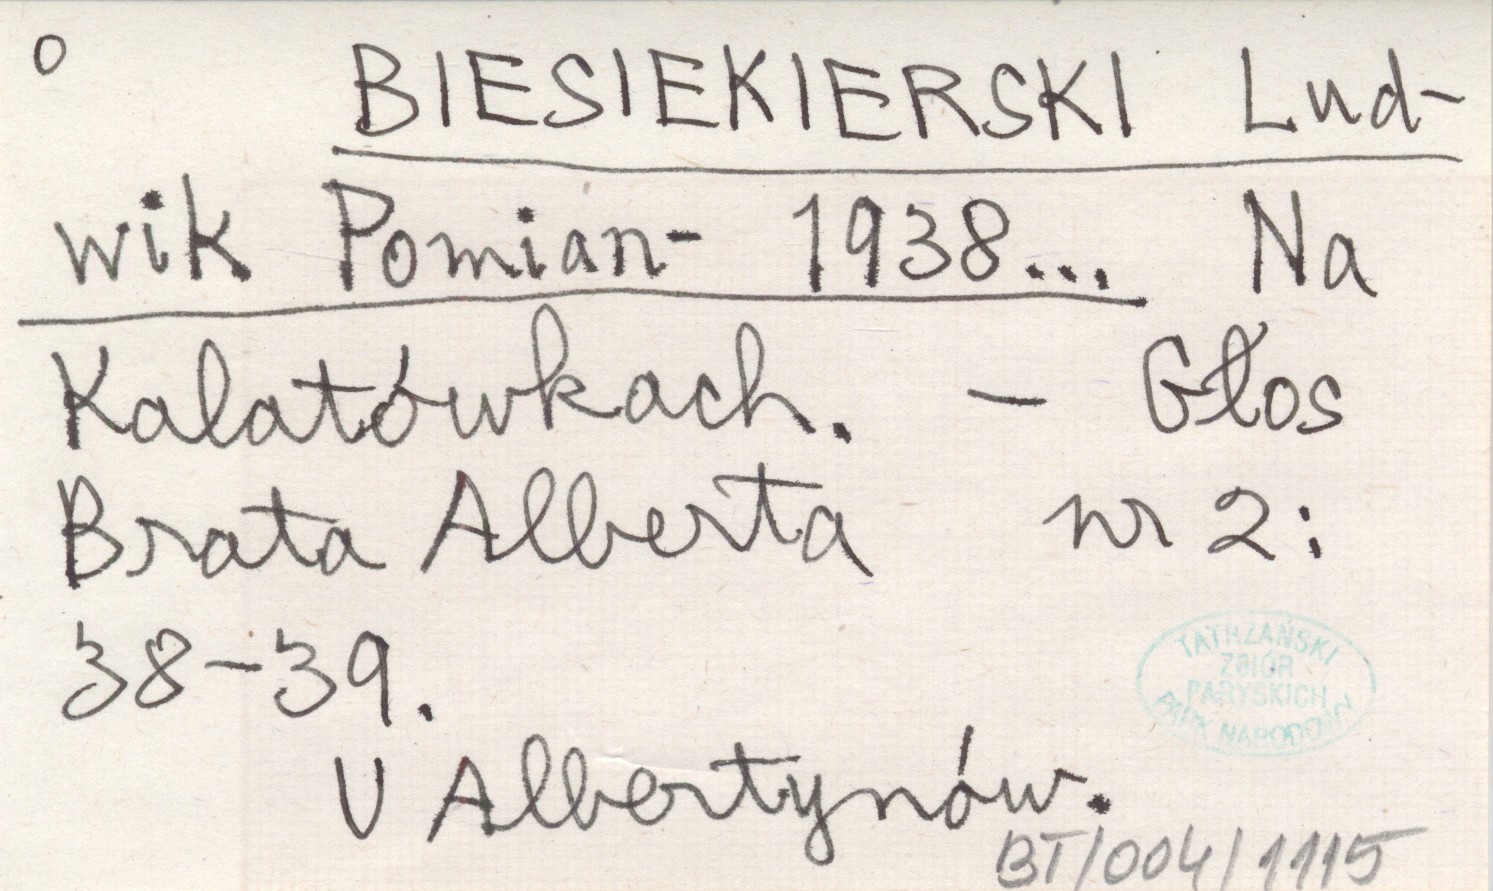 o BIESIEKIERSKI Lud-
wik Pomian- 1938... Na
Kalatówkach. – Głos
Brata Alberta nr 2:
38–39.
TATRZAŃSKI
ZBIÓR
PARYSKICH
PARK NARODOWY
U Albertynów.
BT/004/1115